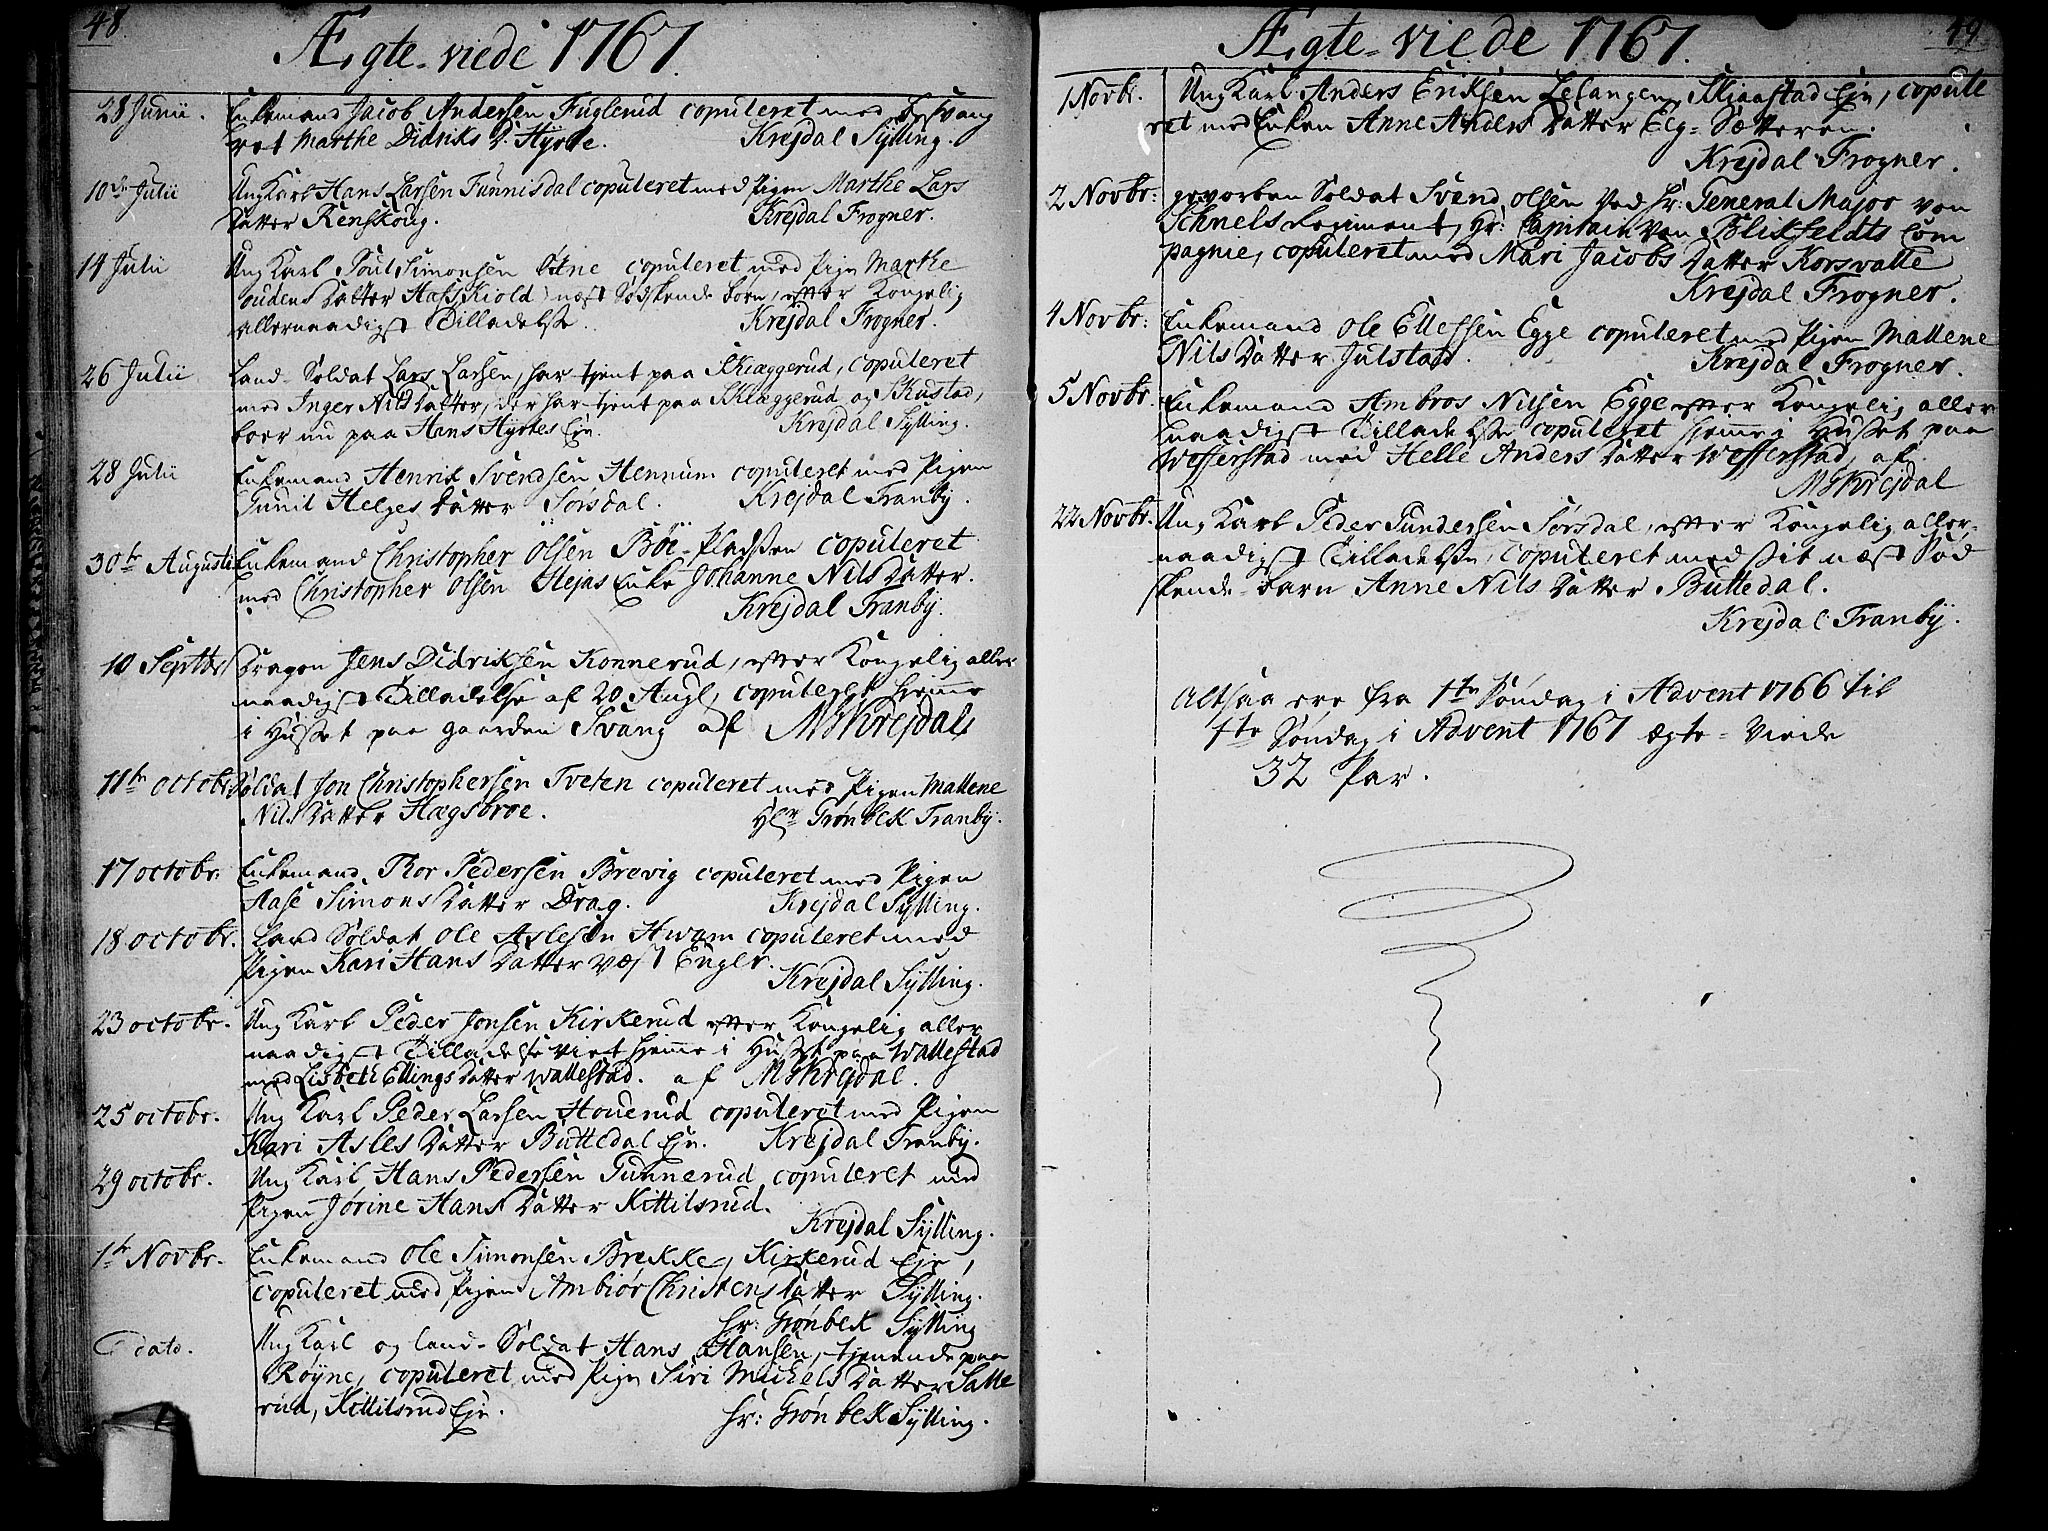 48
Ægte-viede 1767.
28 Junii. Enkemand Jacob Andersen Fuglerud copuleret med besvang
ret Marthe Didriks D. Hyrte. Krejdal Sylling.
10de Julii Ung Karl Hans Larsen Tunnisdal copuleret med Pigen Marthe Lars
Datter Renskoug. Krejdal Frogner.
14 Julii Ung Karl Poul Simonsen copuleret med Pigen Marthe
oudens Datter Hasskiold næst Sødskende born, efter Kongelig
allernaadigst Tilladelse. Krejdal Frogner.
26 Julii Land-Soldat Lars Larsen, har tient paa Skiæggerud, copuleret
med Inger Nils Datter, der har tient paa Skiæggerud og Skustad,
boer nu paa Hans Hyrtes Eje. Krejdal Sylling.
28 Julii Enkemand Henrik Svendsen Hennum copuleret med Pigen
Gunil Helges Datter Sørsdal. Krejdal Tranby.
30te Augusti Enkemand Christopher Olsen Böe-Pladsen copuleret
med Christopher Olsen Hejas Enke Johanne Nils Datter.
Krejdal Tranby.
10 Septbr Dragon Jens Didriksen Konnerud, efter Kongelig aller
naadigst Tilladelse af 20 Augl, copuleret hjemme
i Huset paa gaarden Svang af MKrejdal
11te octobr Soldat Jon Christophersen Tveten copuleret med Pigen Mallene
Nils Datter Hægsbroe. Hr Grønbek Tranby.
17 octobr. Enkemand Thor Pedersen Brevig copuleret med Pigen
Aase Simons Datter Drag. Krejdal Sylling.
18 octobr. Land Soldat Ole Aslesen Hwam copuleret med
Pigen Kari Hans Datter Væst Enger. Krejdal Sylling.
23 octobr. Ung Karl Peder Jonsen Kirkerud efter Kongelig aller
naadigst Tilladelse viet hjemme i Huset paa Wallestad
med Lisbeth Ellings Datter Wallestad. af MKrejdal.
25 octobr. Ung Karl Peder Larsen Houerud copuleret med Pigen
Kari Asles Datter Buttedal Eje. Krejdal Tranby.
29 octobr. Ung Karl Hans Pedersen Gunnerud copuleret med
Pigen Jørine Hans Datter Kittilsrud.
Krejdal Sylling.
1te Novbr. Enkemand Ole Simonsen Brekke, Kirkerud Eje,
copuleret med Pigen Ambiør Christens Datter Sylling.
Hr: Grønbek Sylling
dato. Ung Karl og land-Soldat Hans Hansen, tienende paa
Røyne, copuleret med Pigen Siri Mickels Datter Sætte
rud, Kittilsrud Eje. Hr: Grønbek Sylling.
49
Ægte-viede 1767.
1 Novbr. Ung Karl Anders Eriksen Lesangen, Skjæstad Eje, copule
ret med Enken Anne Anders Datter Elg-Sætteren.
Krejdal Frogner.
2 Novbr: geworben Soldat Svend Olsen ved Hr: General Major von
Schnels Regiment, Hr: Capitain von Blixfeldts Com
pagnie, copuleret med Mari Jacobs Datter Korsvalle
Krejdal Frogner.
4 Novbr: Enkemand Ole Ellefsen Egge copuleret med Pigen Mallene
Nils Datter Julstad. Krejdal Frogner.
5 Novbr. Enkemand Ambros Nilsen Egge efter Kongelig aller
naadigst Tilladelse copuleret hjemme i Huset paa
Wefferstad med Helle Anders Datter Wefferstad, af
MKrejdal
22 Novbr. Ung Karl Peder Gundersen Sørsdal, efter Kongelig aller-
naadigst Tilladelse, copuleret med sit næst Sød
skende-barn Anne Nils Datter Buttedal.
Krejdal Tranby.
Altsaa ere fra 1te Søndag i Advent 1766 til
1te Søndag i Advent 1767 ægte-viede
32 Par.